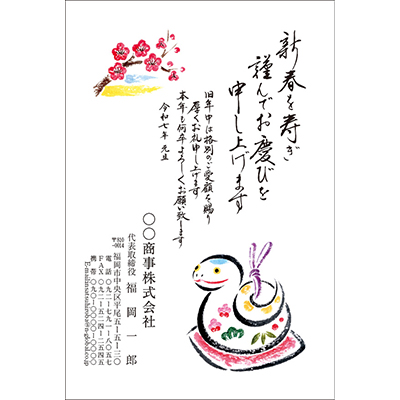 新春を寿ぎ
謹んでお慶びを
申し上げます
旧年中は格別のご愛顧を賜り
厚くお礼申し上げます
本年も何卒よろしくお願い致します
令和七年 元旦
〇〇商事株式会社
代表取締役 福岡一郎
〒810-0014
福岡市中央区平尾五-五-三〇
電話 〇九二-七九一-八〇五七
FAX 〇九二-五二四-二五四五
携帯 〇九〇-〇〇〇〇-〇〇〇〇